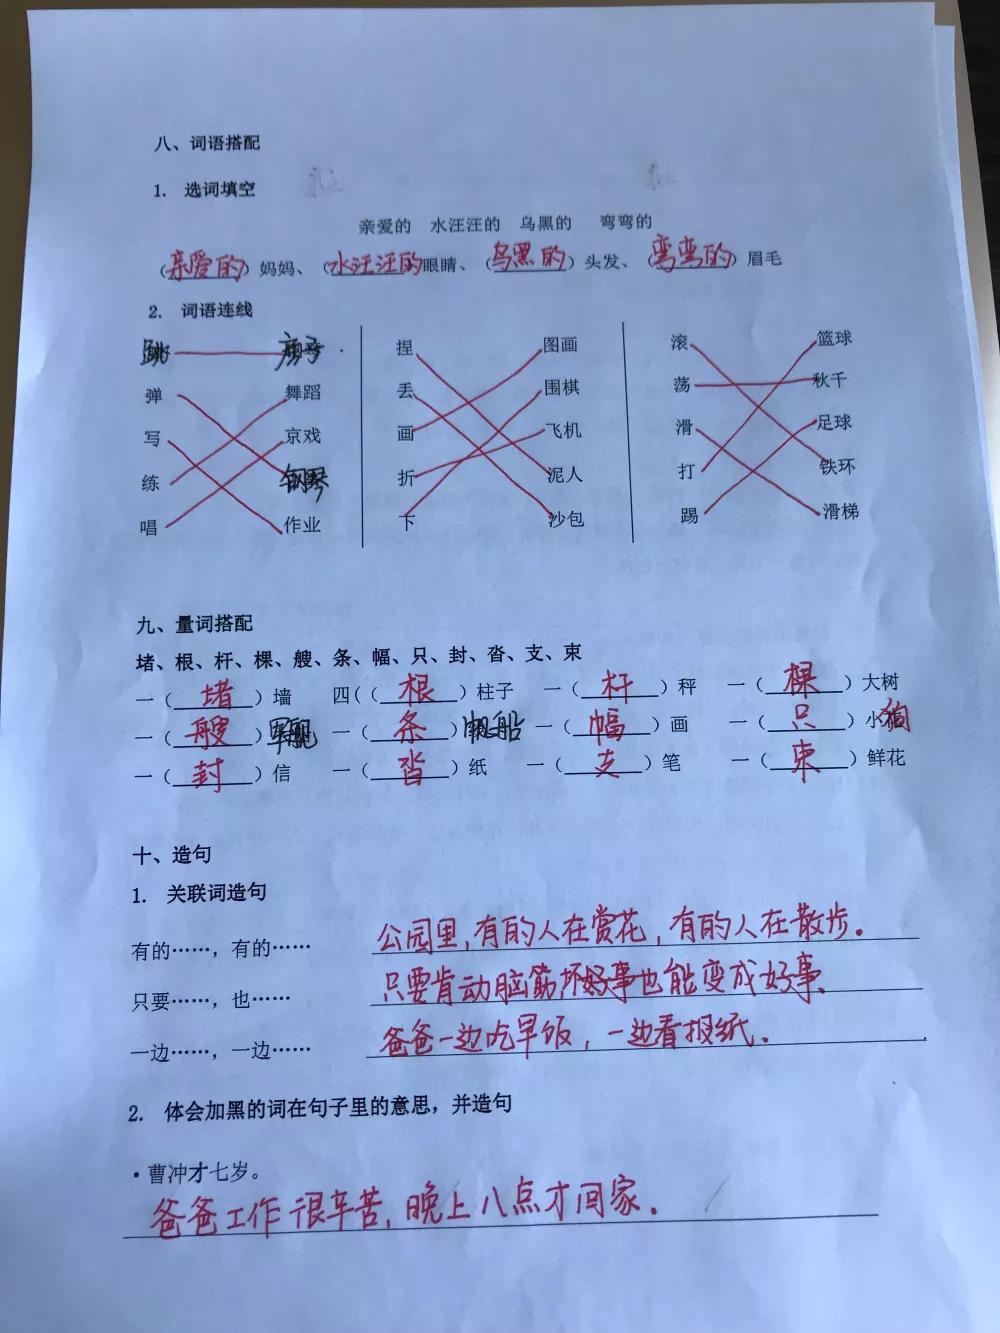 八、词语搭配
1. 选词填空
亲爱的 水汪汪的 乌黑的 弯弯的
(亲爱的)妈妈、(水汪汪的)眼睛、(乌黑的)头发、(弯弯的)眉毛
2. 词语连线
跳 捏 图画 滚 篮球
弹 舞蹈 丢 围棋 荡 秋千
写 京戏 画 飞机 滑 足球
练 钢琴 折 泥人 打 铁环
唱 作业 下 沙包 踢 滑梯
九、量词搭配
堵、根、杆、棵、艘、条、幅、只、封、沓、支、束
一(堵)墙 四((根)柱子 一(杆)秤 一(棵)大树
一(艘)军舰 一(条)帆船 一(幅)画 一(只)小狗
一(封)信 一(沓)纸 一(支)笔 一(束)鲜花
十、造句
1. 关联词造句
有的……，有的…… 公园里,有的人在赏花,有的人在散步。
只要……，也…… 只要肯动脑筋,坏好事也能变成好事、
一边……，一边…… 爸爸一边吃早饭,一边看报纸。
2. 体会加黑的词在句子里的意思，并造句
·曹冲才七岁。
爸爸工作很辛苦,晚上八点才回家.